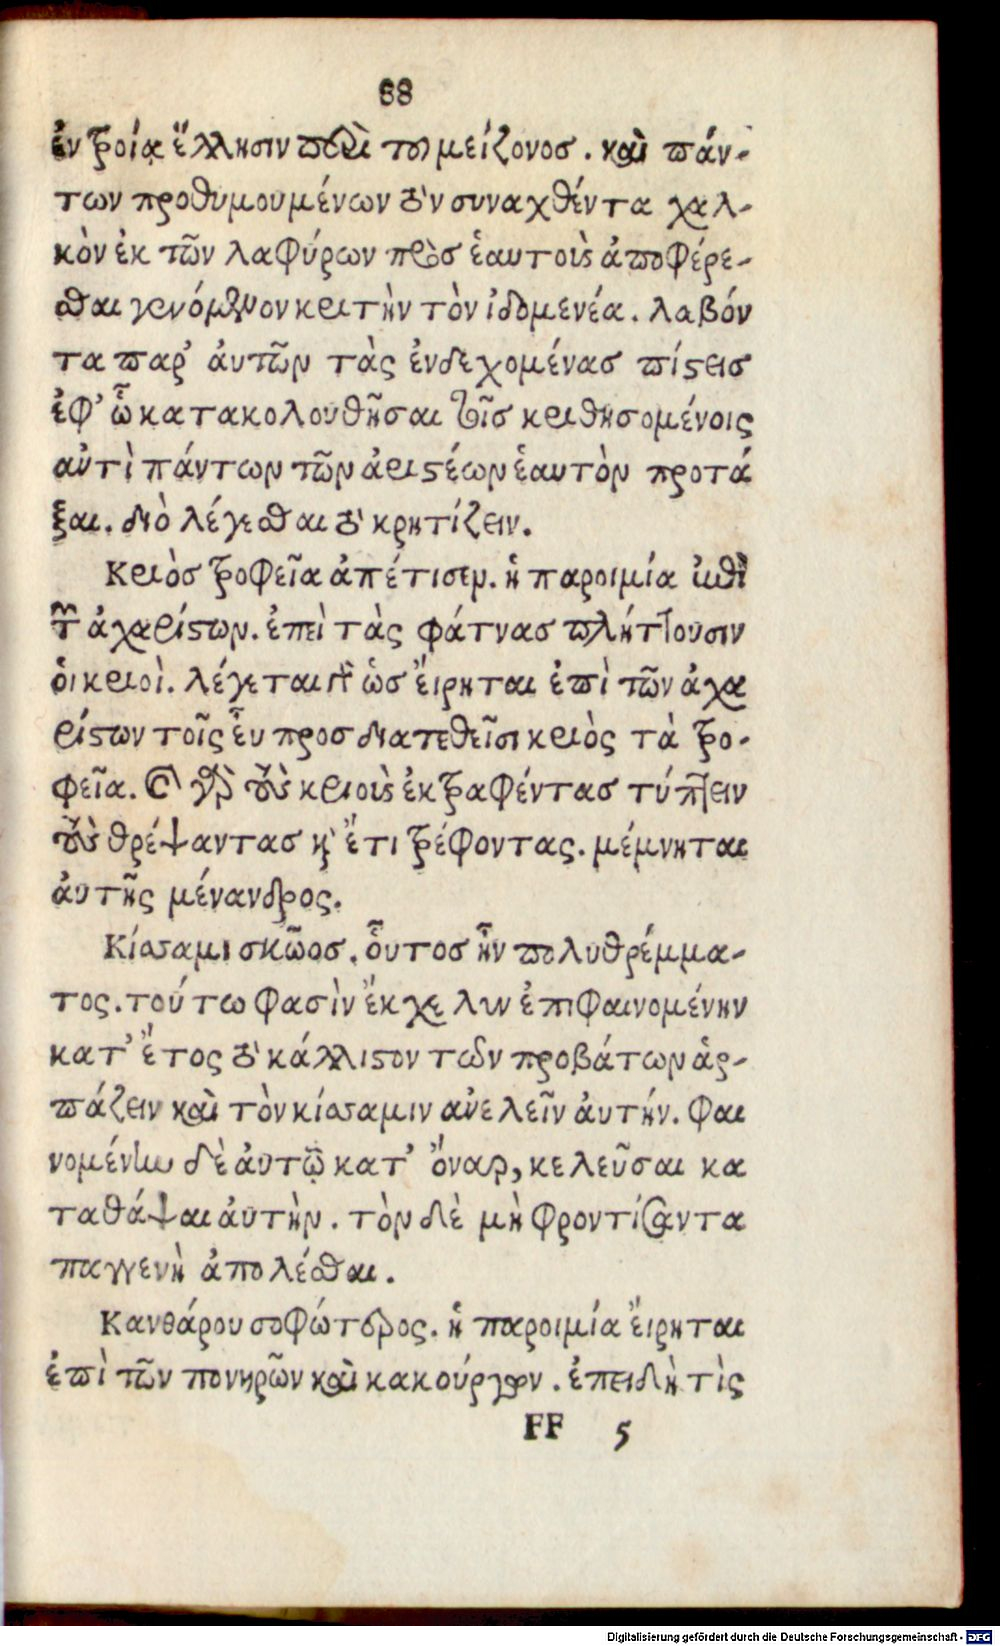 68
ἐν τροίᾳ ἕλλησιν περὶ τοῦ μείζονος. καὶ πάν-
των προθυμουμένων τὸν συναχθέντα χαλ-
κὸν ἐκ τῶν λαφύρων πρὸς ἑαυτοὺς ἀποφέρε-
σθαι γενόμενον κριτὴν τὸν ἰδομενέα. λαβόν
τα παρ' ἀυτῶν τὰς ἐνδεχομένας πίστεις
ἐφ' ᾧ κατακολουθῆσαι τοῖς κριθησομένοις
αὐτὶ πάντων τῶν ἀριστέων ἑαυτὸν προτά
ξαι. διὸ λέγεσθαι τὸ κρητίζειν.
Κριὸς τροφεῖα ἀπέτισεν. ἡ παροιμία ἐπὶ
τῶν ἀχαρίστων. ἐπεὶ τὰς φάτνας πλήττουσιν
ὁι κριοὶ. λέγεται γὰρ ὡς ἔιρηται ἐπὶ τῶν ἀχα
ρίστων τοῖς ἐυ προσδιατεθεῖσι κριὸς τὰ τρο-
φεῖα. καὶ γὰρ τοὺς κριοὺς ἐκτραφέντας τύπτειν
τοὺς θρέψαντας καὶ ἔτι τρέφοντας. μέμνηται
ἀυτῆς μένανδρος.
Κίσσαμις κῶος. ὅυτος ἦν πολυθρέμμα-
τος. τούτω φασὶν ἔκχελυν ἐπιφαινομένην
κατ' ἔτος τὸ κάλλιστον τῶν προβάτων ἁρ-
πάζειν καὶ τὸν κίσσαμιν ἀνελεῖν ἀυτήν. φαι
νομένην δὲ ἀυτῷ κατ' ὄναρ, κελεῦσαι κα
ταθάψαι ἀυτὴν. τὸν δὲ μὴ φροντίσαντα
παγγενῆ ἀπολέσθαι.
Κανθάρου σοφώτερος. ἡ παροιμία ἔιρηται
ἐπὶ τῶν πονηρῶν καὶ κακούργων. ἐπειδὴ τὶς
FF 5
Digitalisierung gefördert durch die Deutsche Forschungsgemeinschaft - DFG